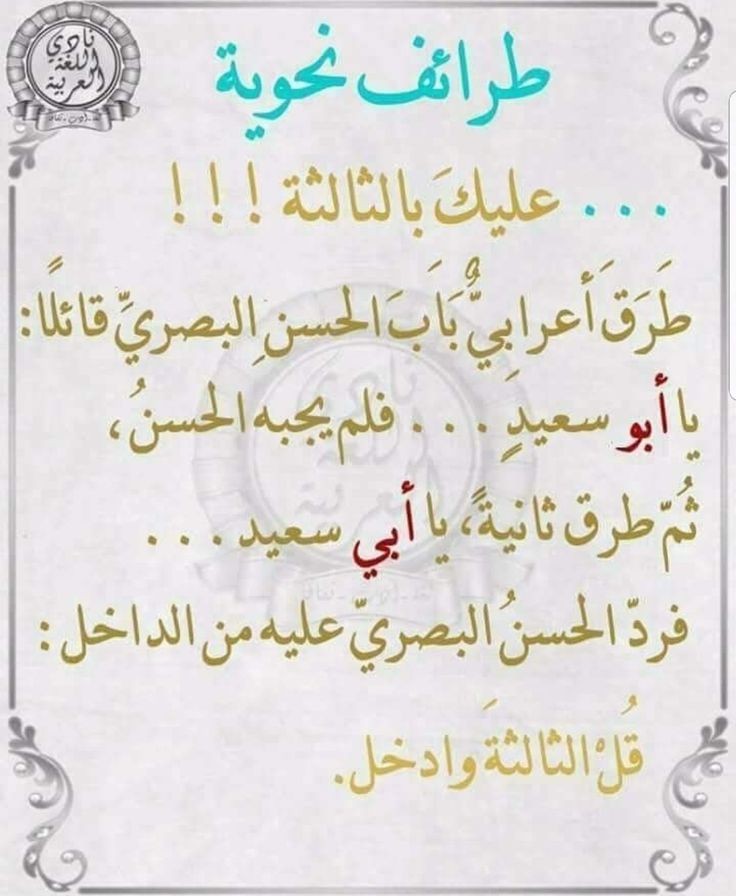 نادي
اللغة
العربية
طرائف نحوية
... عليكَ بالثالثة !!!
طَرَقَ أعرابيٌّ بَابَ الحسنِ البصريِّ قائلًا:
يا أبو سعيدٍ ... فلم يجبه الحسنُ،
ثُمّ طرق ثانيةً، يا أبي سعيد ...
فردّ الحسنُ البصريّ عليه من الداخل:
قُلْ الثالثةَ وادخل.